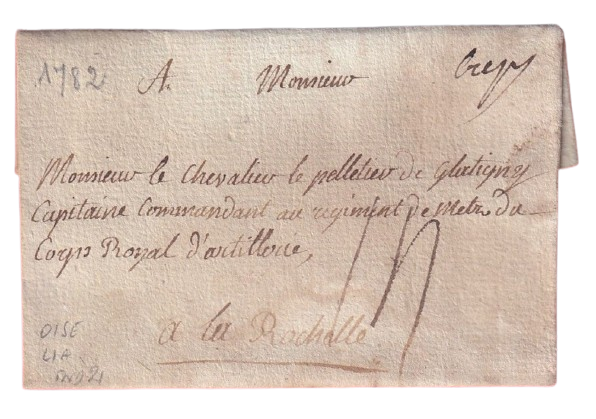 1782 A. Monsieur Crepy
Monsieur le Chevalier le pelletier de Glatigny
Capitaine Commandant au regiment de Metz du
Corps Royal d'artillerie,
a la Rochelle
OISE